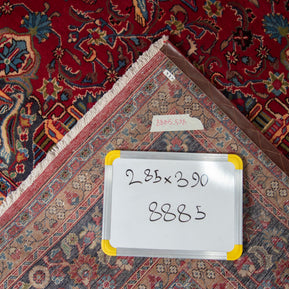 285x390
8885